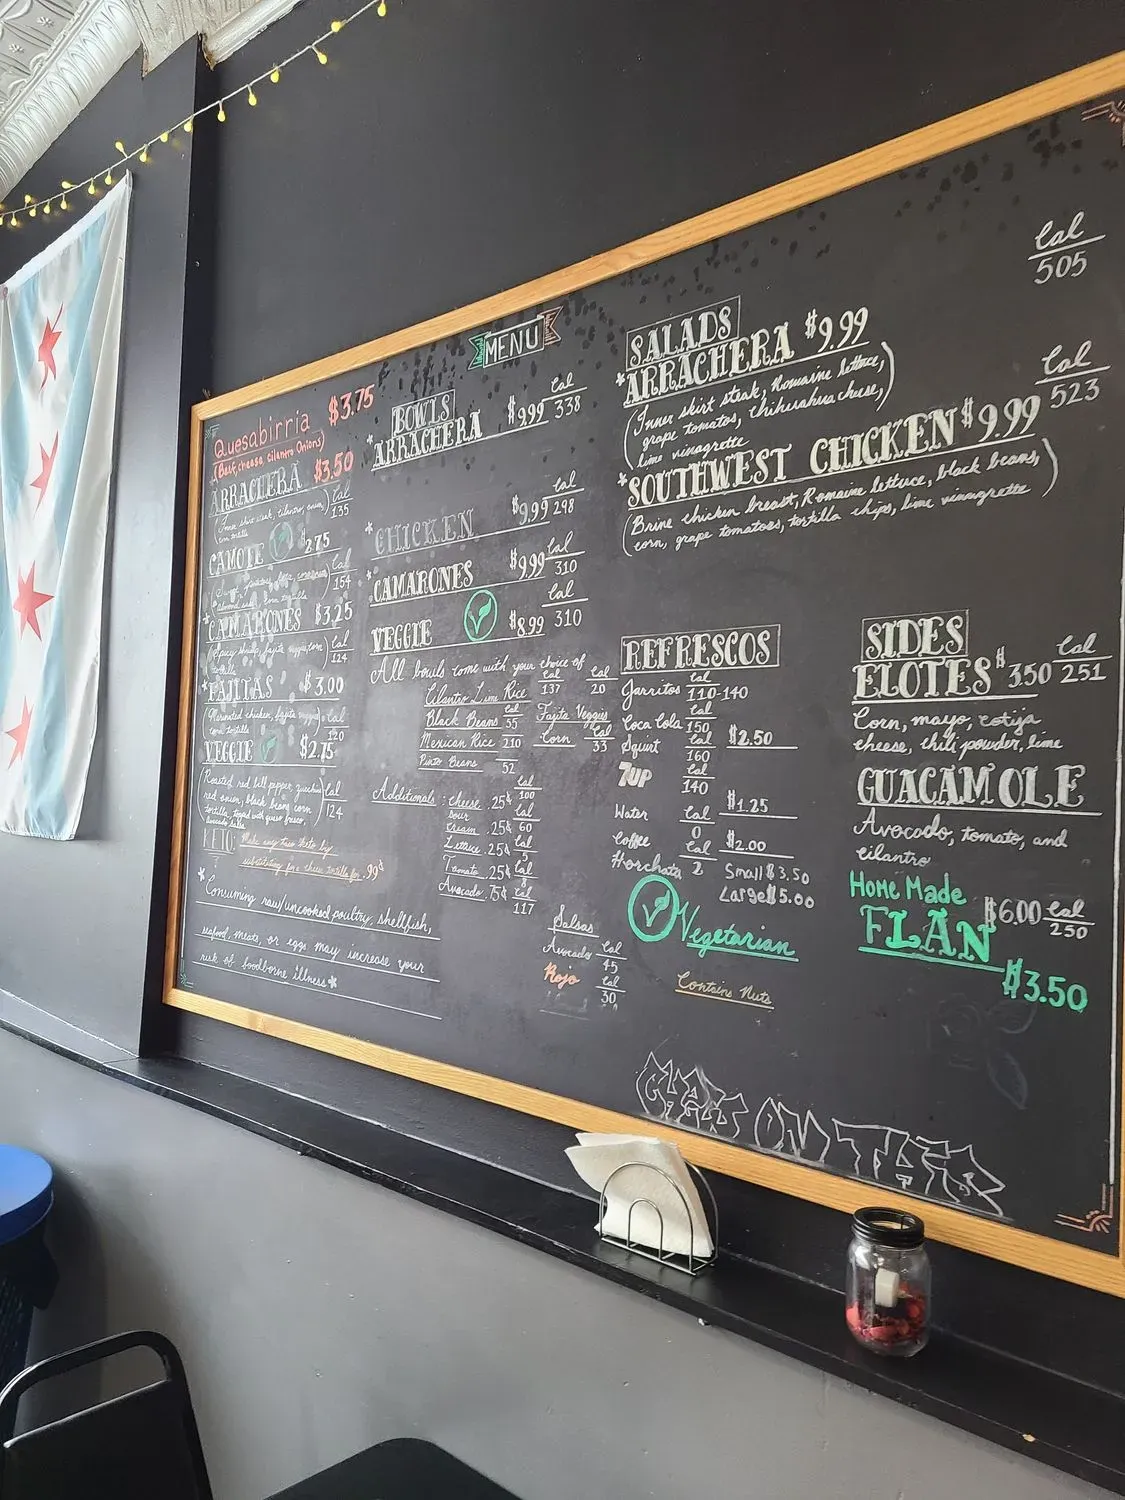 MENU
Quesabirria $3.75
(Beef, cheese cilantro Onions)
ARRACHERA $3.50
(Inner skirt steak, cilantro, onion, Cal
corn tortilla 135
CAMOTE $2.75
Cal
almond salsa, corn tortilla 154
*CAMARONES $3.25
(Spicy shrimp, fajita veggies, corn) Cal
tortilla 124
*FAJITAS $3.00
(Marinated chicken, fajita veggies) Cal
corn tortilla 120
VEGGIE $2.75
(Roasted red bell pepper, zucchini Cal
red onion, black beans, corn 124
tortilla, topped with queso fresco,
avocado salsa
KETO: Make any taco keto by
substituting for a cheese tortilla for .99¢
*Consuming raw/uncooked poultry, shellfish,
seafood, meats, or eggs may increase your
risk of foodborne illness*
BOWLS
*ARRACHERA $9.99 Cal 338
*CHICKEN $9.99 Cal 298
*CAMARONES $9.99 Cal 310
VEGGIE $8.99 Cal 310
All bowls come with your choice of
Cilantro Lime Rice Cal 137
Black Beans Cal 55
Mexican Rice 210
Pinto Beans 52
Fajita Veggies Cal 20
Corn Cal 33
Additionals: cheese .25¢ Cal 100
sour
cream .25¢ Cal 60
Lettuce .25¢ Cal 5
Tomato .25¢ Cal 8
Avocado .75¢ Cal 117
Salsas
Avocado Cal 45
Rojo Cal 30
SALADS
*ARRACHERA $9.99 Cal 505
(Inner skirt steak, Romaine lettuce,
grape tomatoes, Chihuahua cheese,)
lime vinagrette
*SOUTHWEST CHICKEN $9.99 Cal 523
(Brine chicken breast, Romaine lettuce, black beans,
corn, grape tomatoes, tortilla chips, lime vinagrette)
REFRESCOS
Jarritos Cal 110-140
Coca Cola Cal 150
Squirt Cal 160 $2.50
7UP Cal 140
Water Cal 0 $1.25
Coffee Cal 2 $2.00
Horchata Small $3.50
Large $5.00
Vegetarian
Contains Nuts
SIDES
ELOTES $3.50 Cal 251
Corn, mayo, cotija
cheese, chili powder, lime
GUACAMOLE
Avocado, tomato, and
cilantro
$6.00 Cal 250
Home Made
FLAN
$3.50
CHEW ON THIS